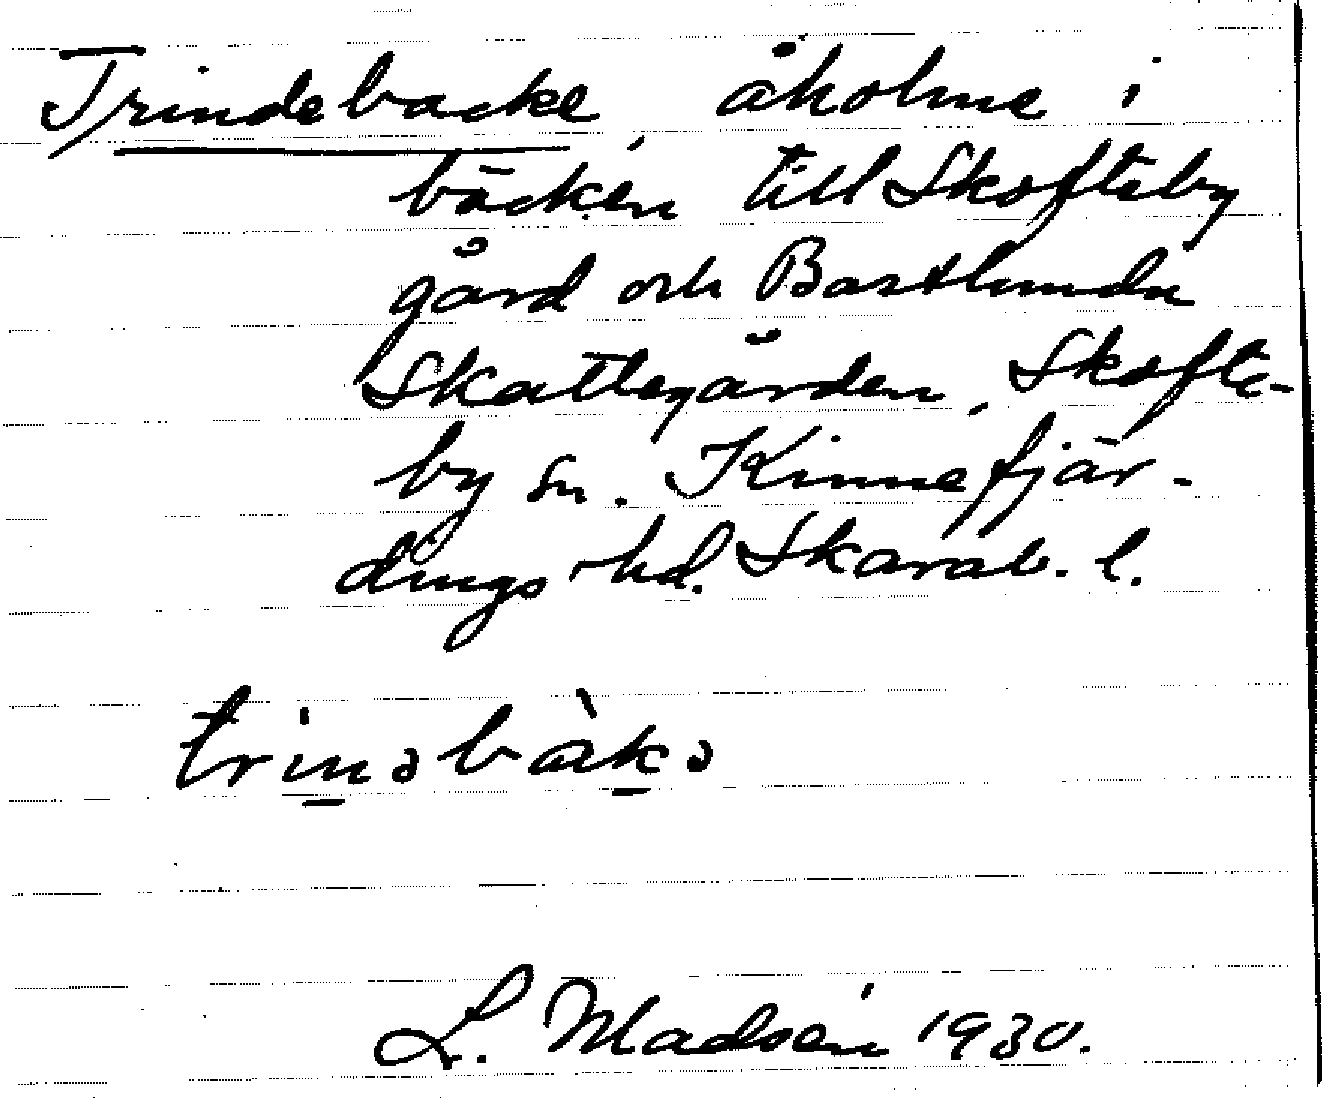 Trindebacke, åholme i
bäcken till Skofteby
gård och Bastlunda
Skattegården, Skofte-
by sn. Kinnefjär-
dings hd. Skarab. l.
trinəbàkə
L. Madsén 1930.